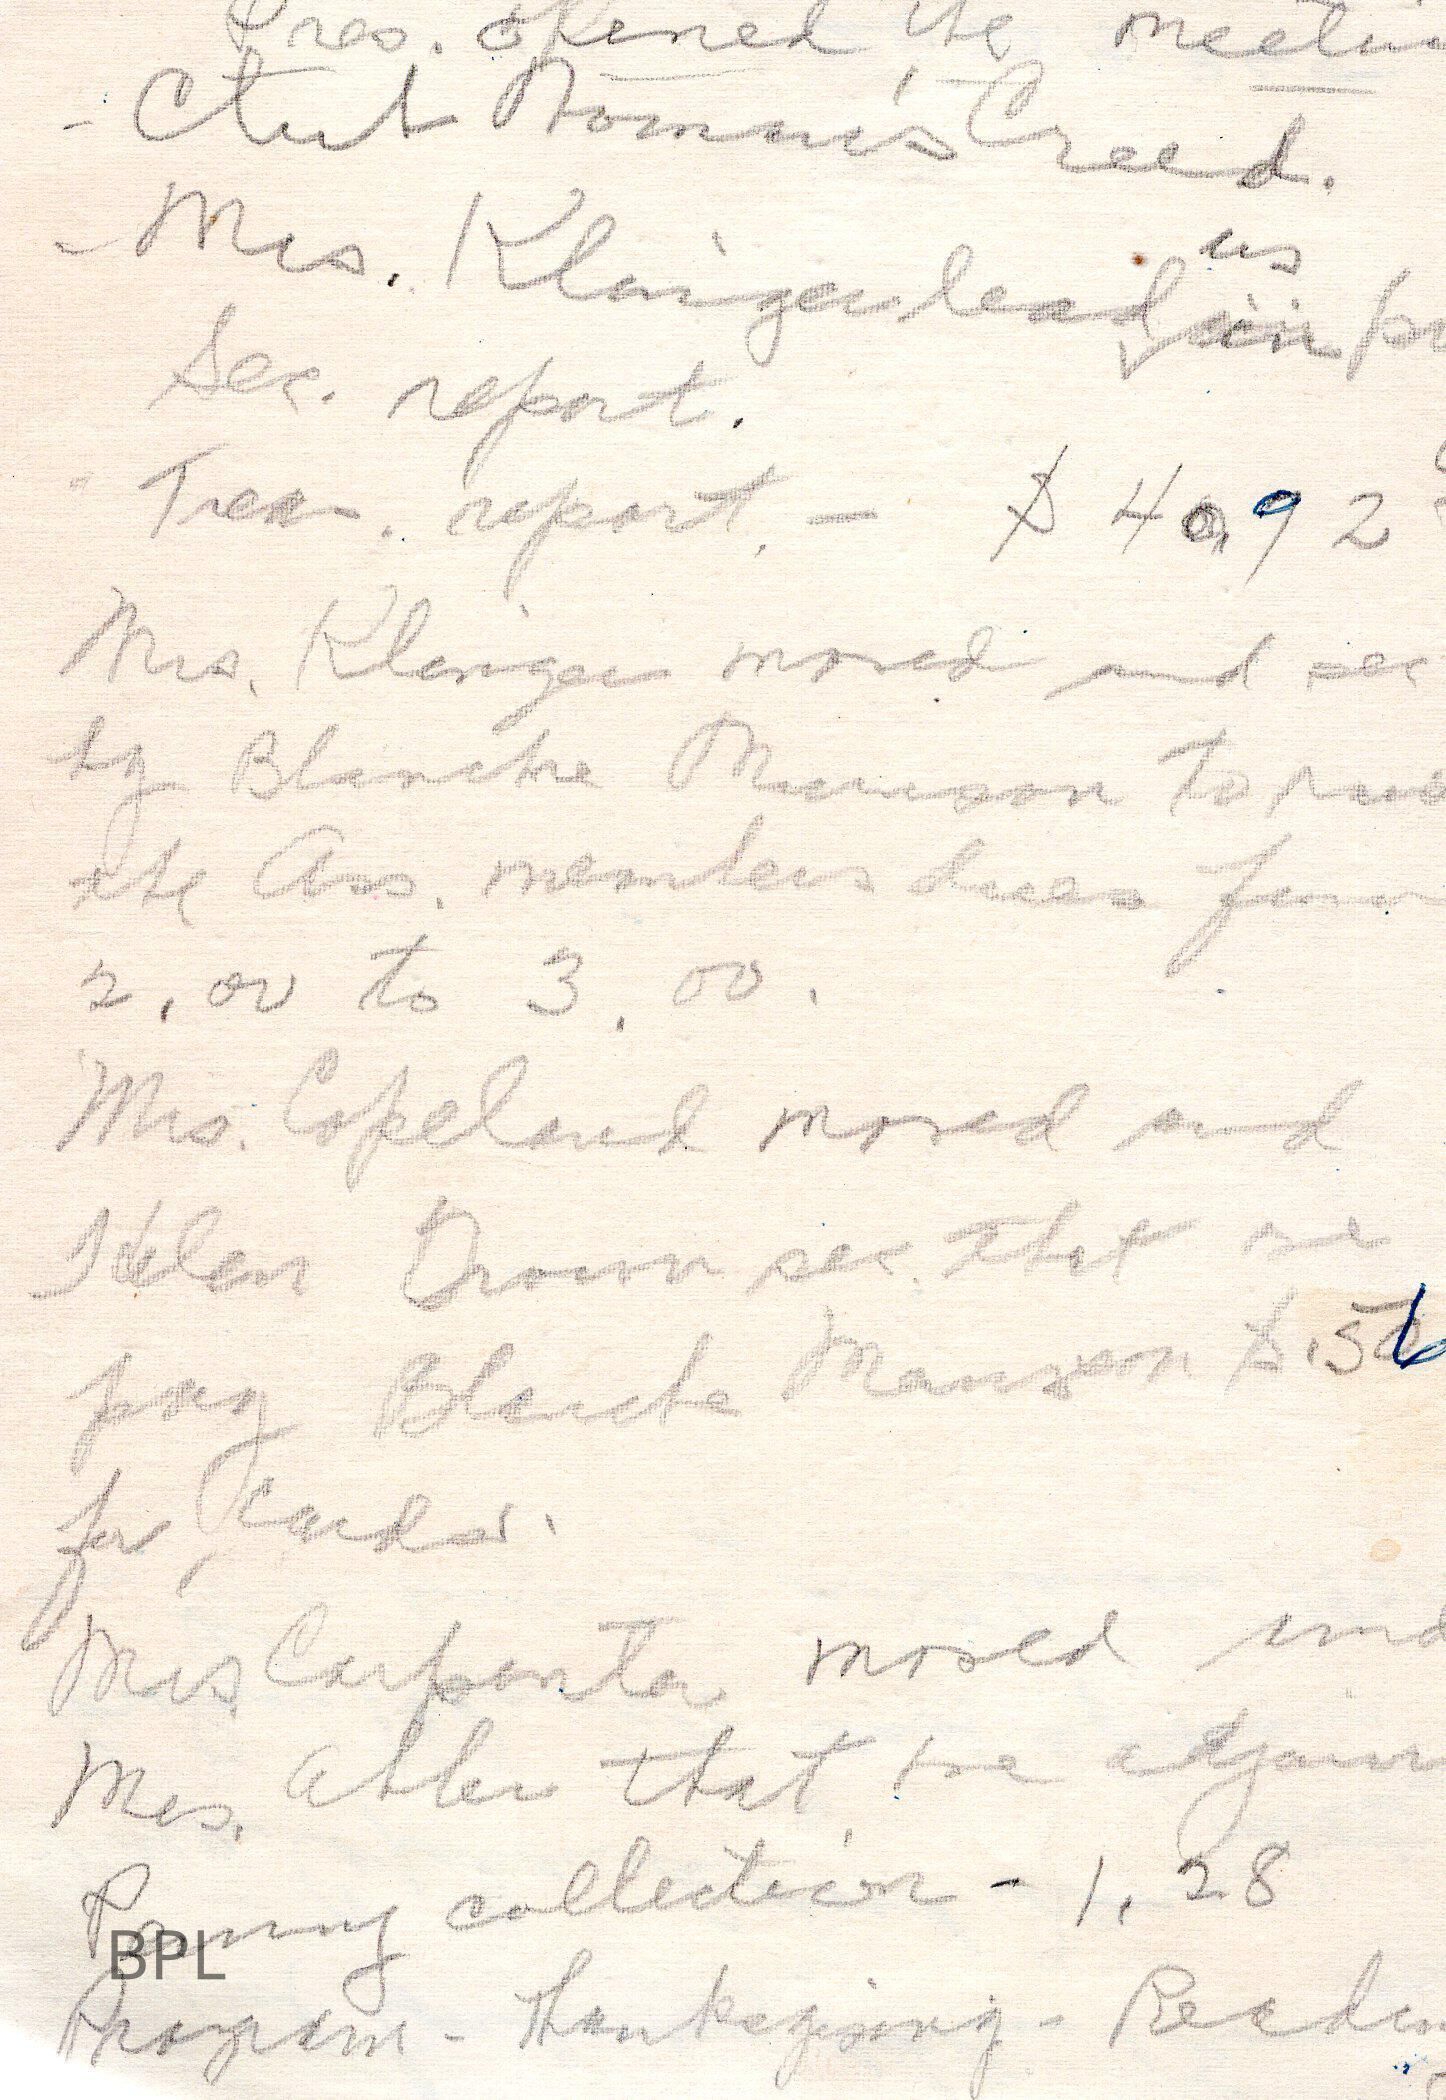 Pres. opened the meetin
- Club Women's Creed.
- Mrs. Klingen lead us in
Sec. report.
" Treas. report. - $ 40.92
Mrs. Klingen moved and sec
by Blanche Munson to
the Ass. members dues from
2.00 to 3.00.
Mrs. Copeland moved and
Helen Brown sec. that we
pay Blanche Munson $ .56
for cards.
Mrs Carpenter moved and
Mrs. that we adjourn
Penny collection - 1.28
Program - Thanksgiving - Readin
BPL